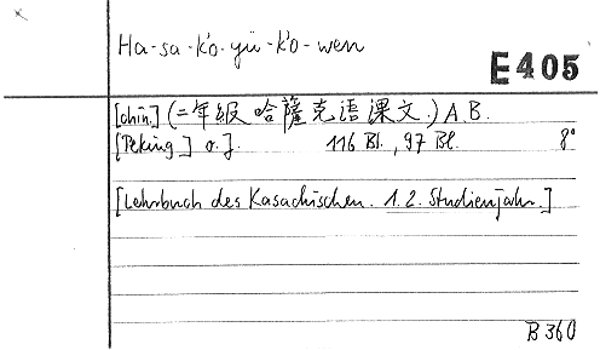 Ha-sa-k'o-yü-k'o-wen
E405
[chin.] (二年级 哈薩克语课文.) A.B.
[Peking] o.J. 116 Bl., 97 Bl. 8°
[Lehrbuch des Kasachischen. 1.2. Studienjahr.]
B 360